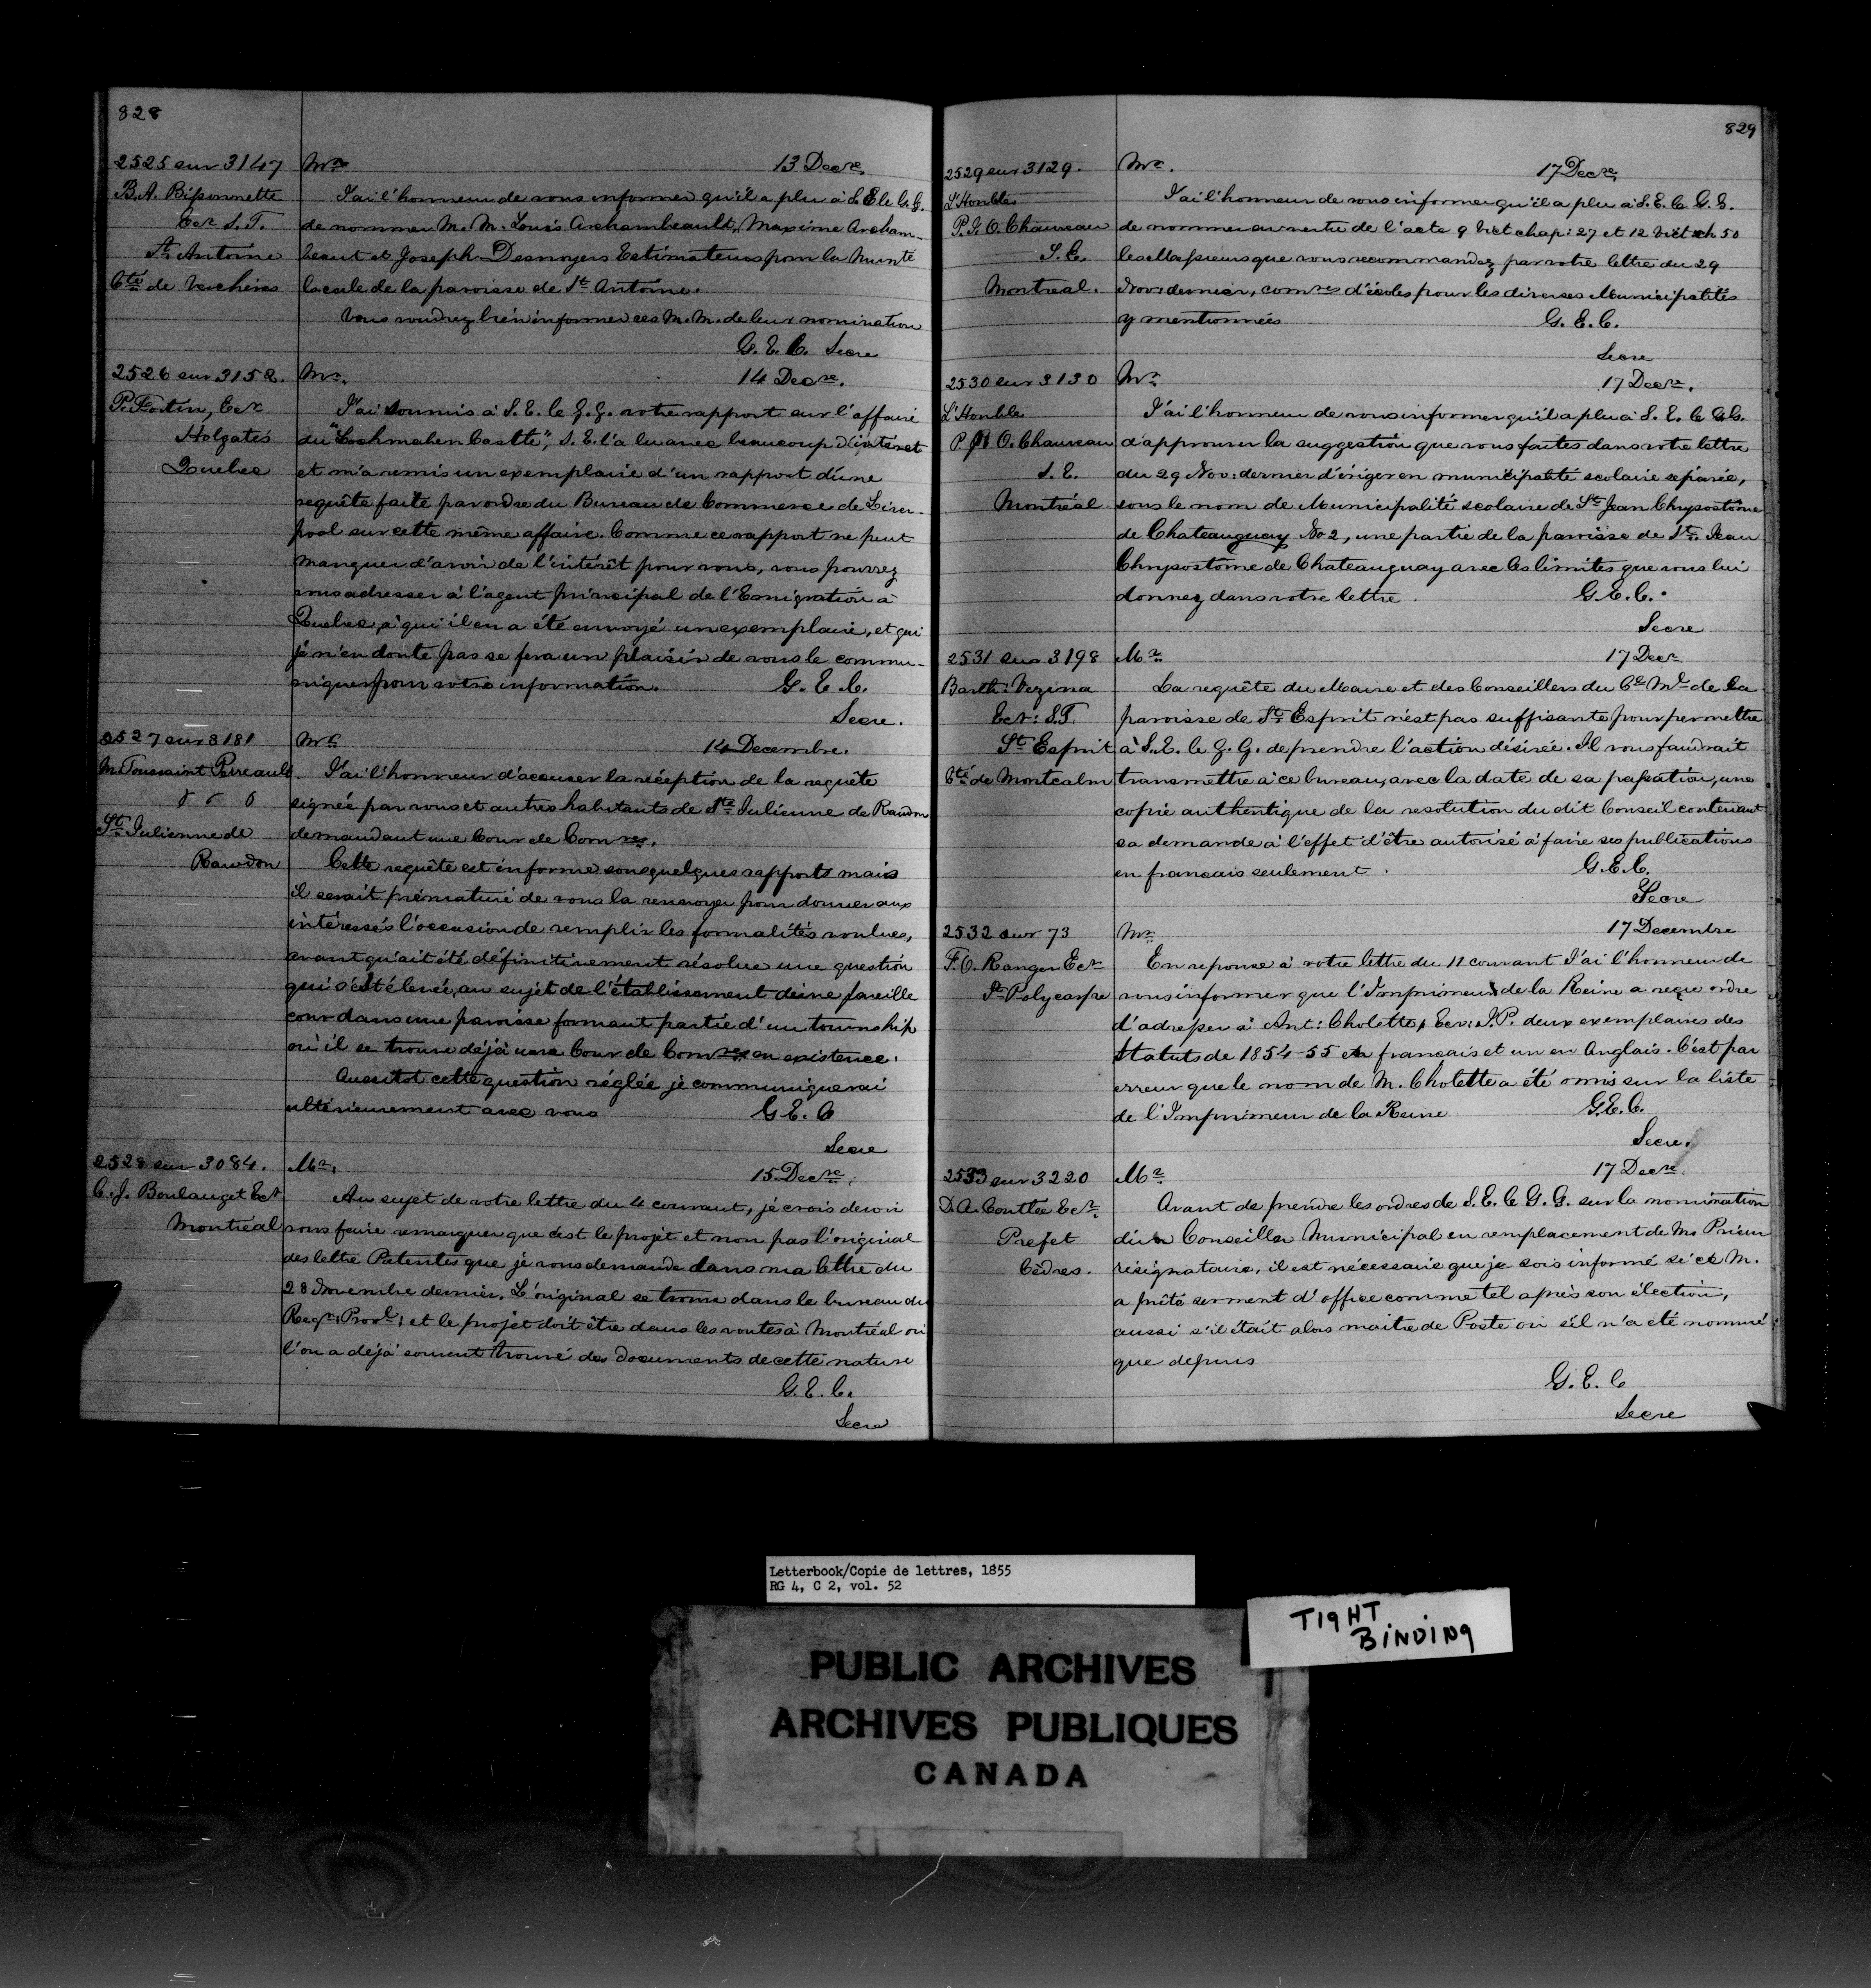 828
2525 sur 3147
B. A. Bissonnette
Ecr S. T.
St Antoine
Cté de Verchères
Mr
13 Decre
J'ai l'honneur de vous informer qu'il a plu à S. E. le G. G.
de nommer M. M. Louis Archambeault, Maxime Archam-
beaut et Joseph Desnoyers Estimateurs pour la Munté
locale de la paroisse de St Antoine.
Vous voudrez bien informer ces M. M. de leur nomination
G. E. C. Secre
2526 sur 3152.
P. Fortin, Ecr
Holgates
Quebec
Mr.
14 Decre.
J'ai soumis à S. E. le G. G. votre rapport sur l'affaire
du "Lochmaben Castle", S. E. l'a lu avec beaucoup d'intéret
et m'a remis un exemplaire d'un rapport d'une
requête faite par ordre du Bureau de Commerce de Liver-
pool sur cette même affaire. Comme ce rapport ne peut
manquer d'avoir de l'intérêt pour vous, vous pourrez
vous adresser à l'agent principal de l'Emigration à
Quebec, à qui il en a été envoyé un exemplaire, et qui
je n'en doute pas se fera un plaisir de vous le commu-
niquer pour votre information.
G. E. C.
Secre.
2527 sur 3181
M. Toussaint Perreault
Ste Julienne de
Rawdon
Mr
14 Decembre.
J'ai l'honneur d'accuser la réception de la requête
signée par vous et autres habitants de Ste Julienne de Rawdon
demandant une Cour de Comres.
Cette requête est informe sous quelques rapports mais
il serait prématuré de vous la renvoyer pour donner aux
intéressés l'occasion de remplir les formalités voulues,
avant qu'ait été définitivement résolue une question
qui s'est élevée, au sujet de l'établissement d'une pareille
cour dans une paroisse formant partie d'un township
où il se trouve déjà une Cour de Comres en existence.
Aussitot cette question réglée je communiquerai
ultérieurement avec vous
G. E. C
Secre
2528 sur 3084.
C. J. Boulanget Ecr
Montréal
Mr.
15 Decre.
Au sujet de votre lettre du 4 courant, je crois devoir
vous faire remarquer que c'est le projet et non pas l'original
des lettre Patentes que je vous demande dans ma lettre du
28 Novembre dernier. L'original se trouve dans le bureau du
Regr: Provl, et le projet doit être dans les voutes à Montréal où
l'on a déjà souvent trouvé des documents de cette nature
G. E. C.
Secre
829
2529 sur 3129.
L'Honble
P. J. O. Chauveau
S. E.
Montreal.
Mr.
17 Decre
J'ai l'honneur de vous informer qu'il a plu à S. E. le G. G.
de nommer en vertu de l'acte 9 Vict chap: 27 et 12 Vict ch 50
les Messieurs que vous recommandez par votre lettre du 29
Nov: dernier, comres d'écoles pour les diverses Municipalités
y mentionnées
G. E. C.
Secre
2530 sur 3130
L'Honble
P. J. O. Chauveau
S. E.
Montréal
Mr
17 Decre.
J'ai l'honneur de vous informer qu'il a plu à S. E. le G. G.
d'approuver la suggestion que vous faites dans votre lettre
du 29 Nov: dernier d'ériger en municipalité scolaire séparée,
sous le nom de Municipalité scolaire de St Jean Chrysostôme
de Chateauguay No 2, une partie de la paroisse de St. Jean
Chrysostôme de Chateauguay avec les limites que vous lui
donnez dans votre lettre.
G. E. C.
Secre
2531 sur 3198
Barth: Vezina
Ecr: S. T.
St Esprit
Cté de Montcalm
Mr
17 Decr
La requête du Maire et des Conseillers du Cl Ml de la
paroisse de St Esprit n'est pas suffisante pour permettre
à S. E. le G. G. de prendre l'action désirée. Il vous faudrait
transmettre à ce bureau, avec la date de sa passation, une
copie authentique de la resolution du dit Conseil contenant
sa demande à l'effet d'être autorisé à faire ses publications
en francais seulement.
G. E. C.
Secre
2532 sur 73
F. O. Ranger Ecr
St Polycarpe
Mr
17 Decembre
En reponse à votre lettre du 11 courant J'ai l'honneur de
vous informer que l'Imprimeur de la Reine a reçu ordre
d'adresser à Ant: Cholette, Ecr: J. P. deux exemplaires des
Statuts de 1854-55 en francais et un en Anglais. C'est par
erreur que le nom de M. Cholette a été omis sur la liste
de l'Imprimeur de la Reine
G. E. C.
Secre.
2533 sur 3220
D. A. Coutlée Ecr.
Prefet
Cèdres.
Mr
17 Decre
Avant de prendre les ordres de S. E. le G. G. sur la nomination
d'un Conseiller Municipal en remplacement de Mr Prieur
résignataire, il est nécessaire que je sois informé si ce M.
a prêté serment d'office comme tel après son élection,
aussi s'il était alors maitre de Poste ou s'il n'a été nommé
que depuis
G. E. C
Secre
Letterbook/Copie de lettres, 1855
RG 4, C 2, vol. 52
TIGHT
BINDING
PUBLIC ARCHIVES
ARCHIVES PUBLIQUES
CANADA